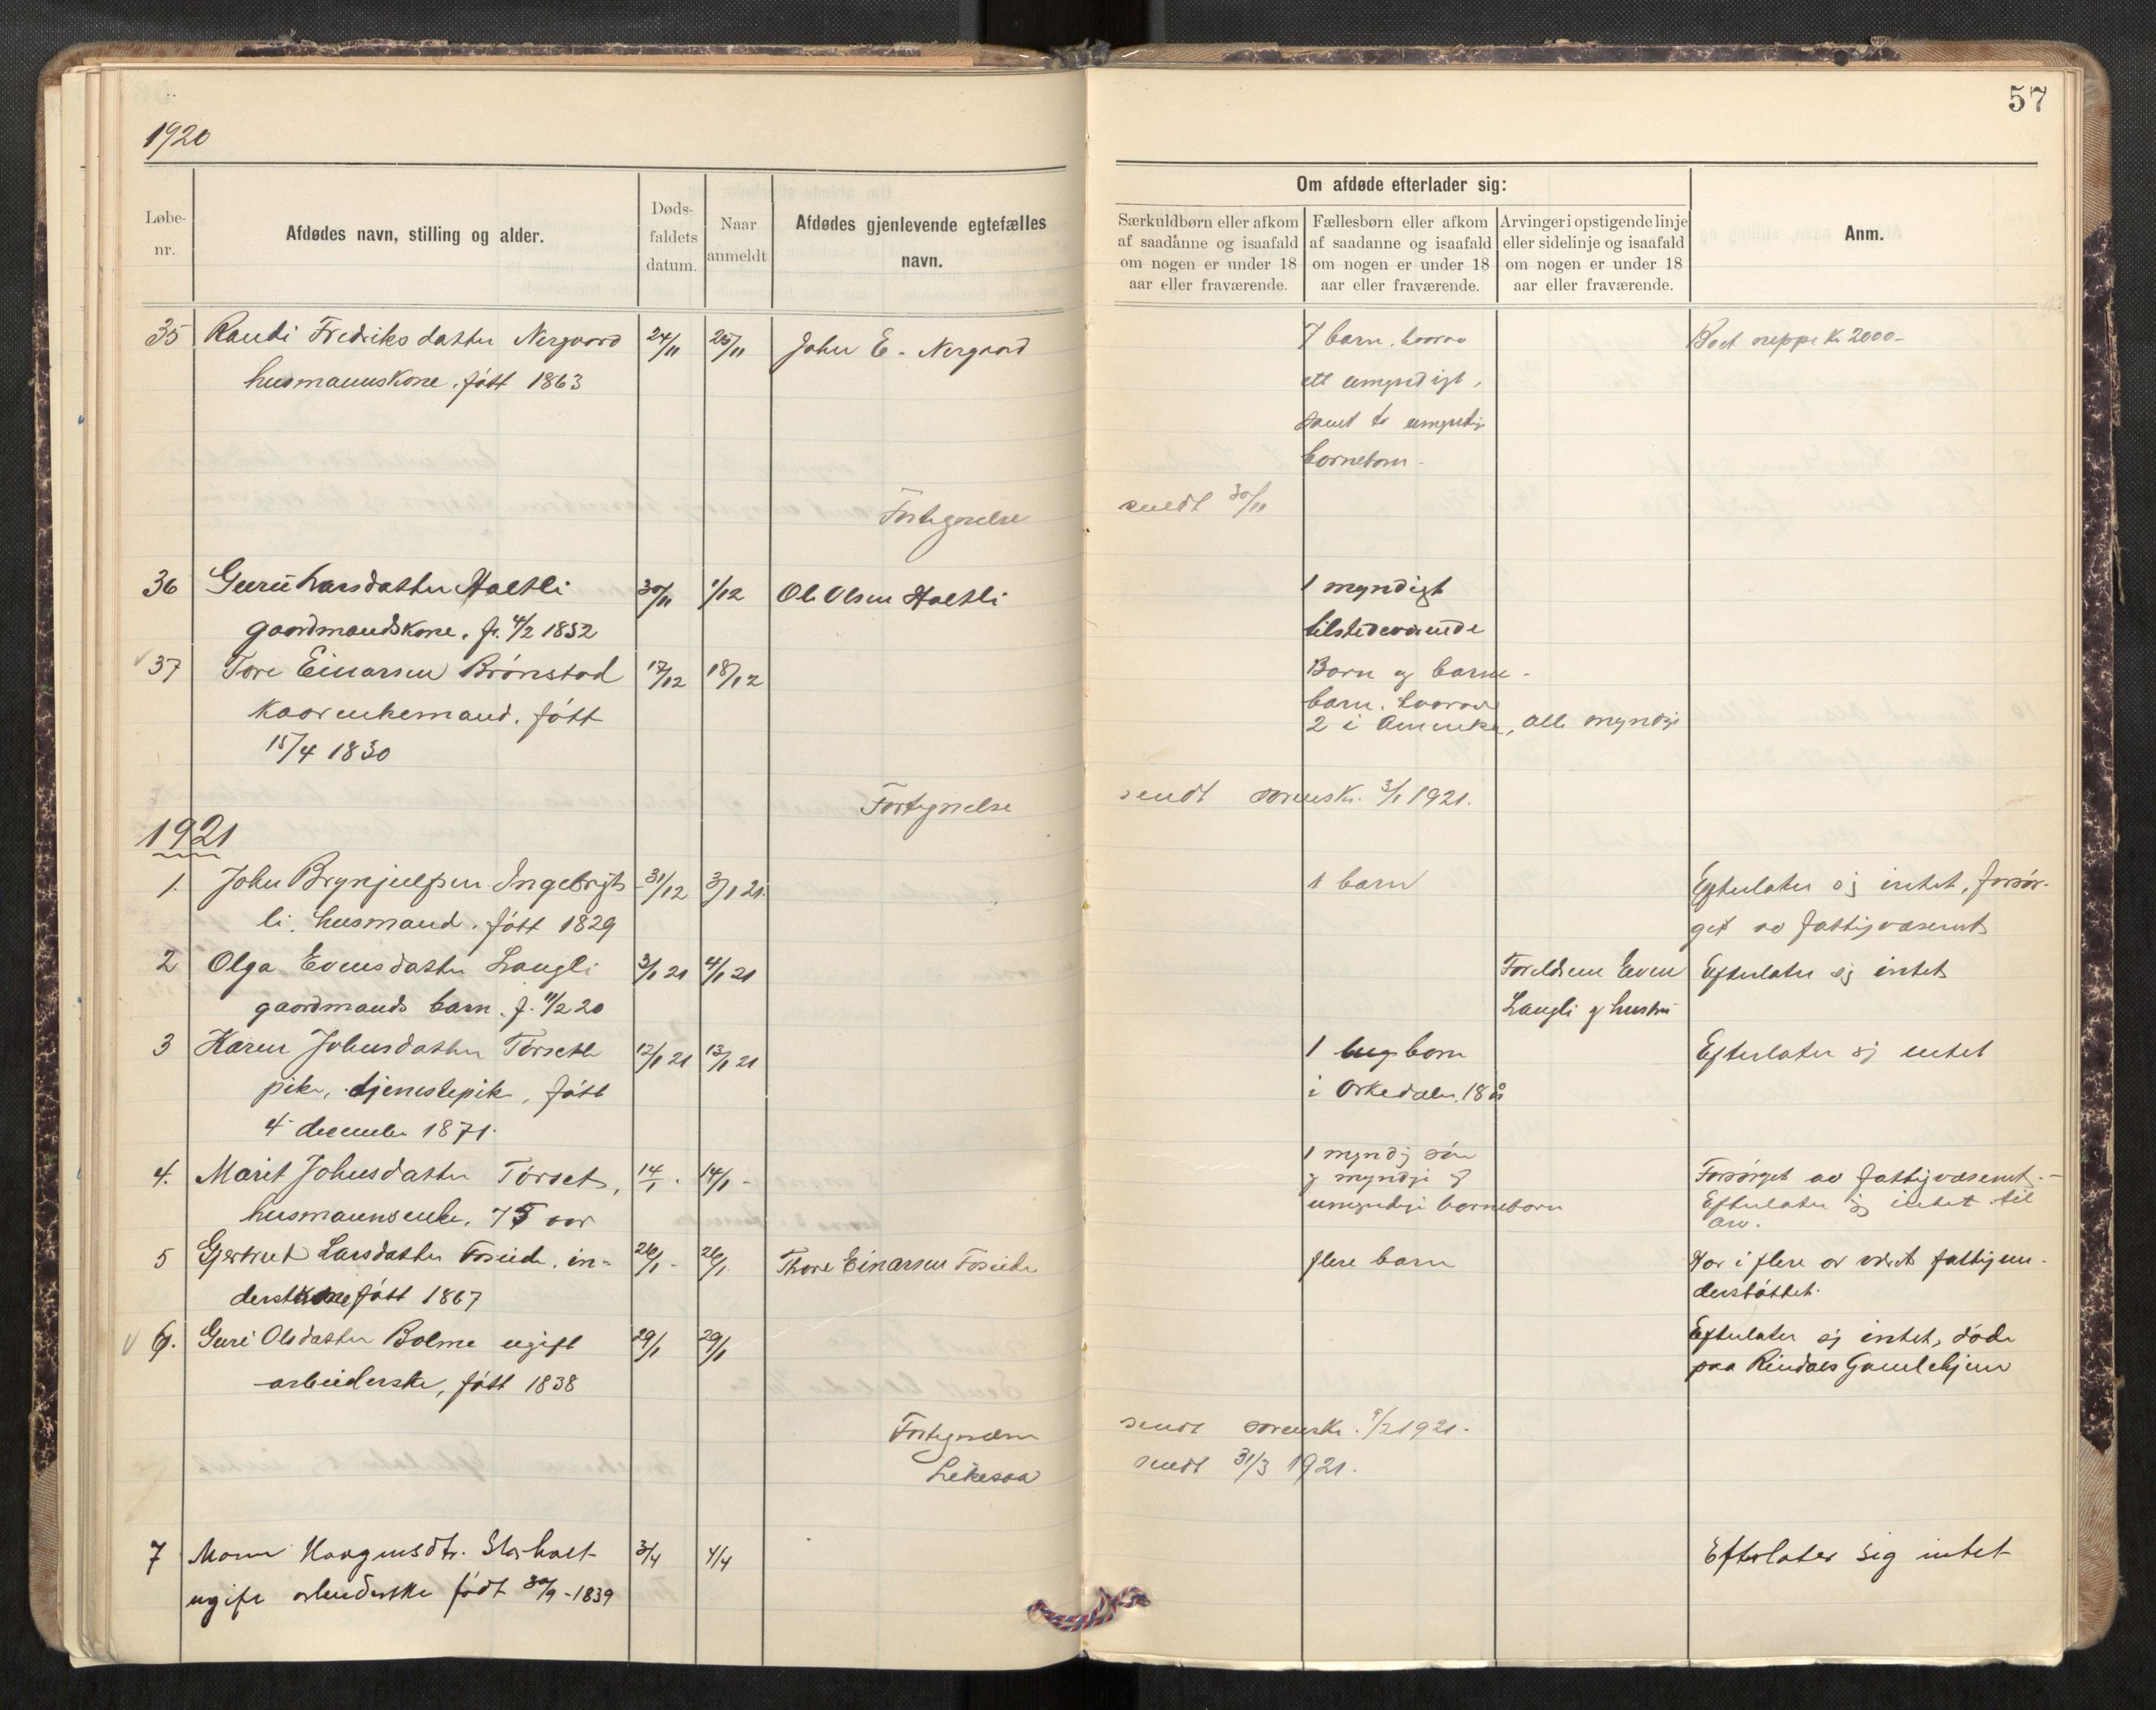 57
1920
Løbe-nr.
Afdødes navn, stilling og alder.
Døds-faldets datum.
Naar anmeldt
Afdødes gjenlevende egtefælles navn.
Om afdøde efterlader sig:
Særkuldbørn eller afkom af saadanne og isaafald om nogen er under 18 aar eller fraværende.
Fællesbørn eller afkom af saadanne og isaafald om nogen er under 18 aar eller fraværende.
Arvinger i opstigende linje eller sidelinje og isaafald om nogen er under 18 aar eller fraværende.
Anm.
35 Randi Fredriksdatter Nergaard 24/11 25/11 John E. Nergaard 7 barn, hvorav Boet neppe Kr 2000-
husmannskone, født 1863 ett umyndigt,
samt to umyndige
barnebarn -
Fortegnelse sendt 30/11
36 Guru Larsdatter Haltli 30/11 1/12 Ole Olsen Haltli 1 myndigt
gaardmandskone, f. 4/2 1852 tilstedeværende
37 Tore Einarsen Brønstad 17/12 18/12 Barn og barne-
kaarenkemand, født barn, hvorav
15/4 1830 2 i Amerika, alle myndige
Fortegnelse sendt sorenskr. 3/1 1921.
1921
1. John Brynjulfsen Ingebrigts 31/12 3/1 21. 1 barn Efterlater sig intet, forsør-
li, husmand, født 1829 get av fattigvæsenet
2 Olga Evensdatter Langli 3/1 21 4/1 21 Foreldrene Even Efterlater sig intet
gaardmands barn, f. 11/2 20 Langli og hustru
3 Karen Johnsdatter Tørsett 12/1 21 13/1 21 1 barn Efterlater sig intet
pike, tjenestepike, født i Orkedalen, 18 å
4 december 1871.
4. Marit Johnsdatter Tørset, 14/1. 14/1 - 1 myndig søn Forsørget av fattigvæsenet. -
husmannsenke, 75 aar og myndige & Efterlater sig intet til
umyndige barnebarn arv.
5 Gjertrud Larsdatter Foseide, in- 26/1 - 26/1. Thore Einarsen Foseide flere barn Har i flere år været fattigun-
derstkone født 1867 derstøttet.
6. Guri Olsdatter Bolme ugift 29/1 29/1 Efterlater sig intet, døde
arbeiderske, født 1838 paa Rindals Gamlehjem
Fortegnelse sendt sorenskr. 9/2 1921.
Likesaa sendt 31/3 1921.
7 Haagensdtr. 3/4 4/4 Efterlater sig intet
ugift arbeiderske født 30/9 - 1839